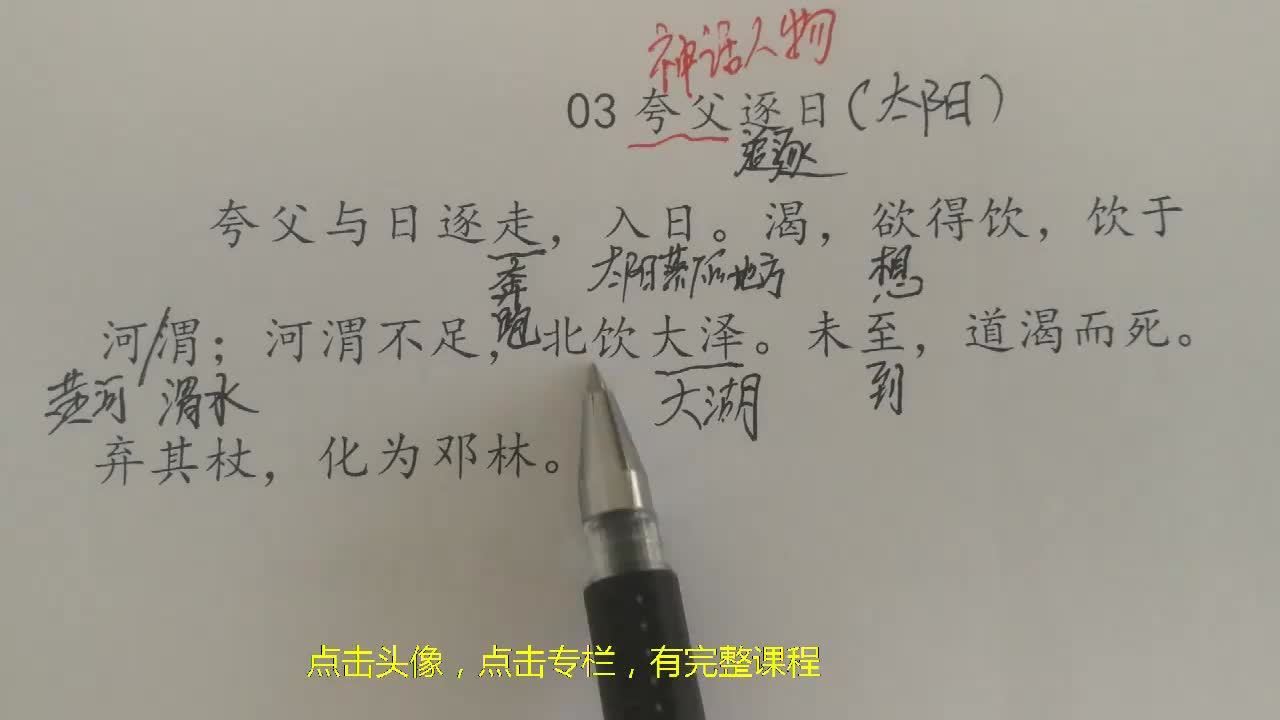 神话人物
03 夸父逐日(太阳)
追逐
夸父与日逐走，入日。渴，欲得饮，饮于
奔跑 太阳落下的地方 想
河/渭；河渭不足，北饮大泽。未至，道渴而死。
黄河 渭水 大湖 到
弃其杖，化为邓林。
点击头像，点击专栏，有完整课程